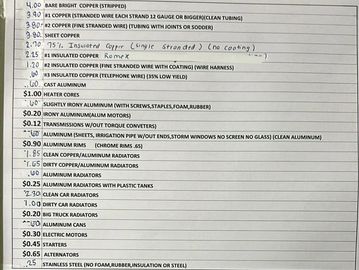 4.00 BARE BRIGHT COPPER (STRIPPED)
3.90 #1 COPPER (STRANDED WIRE EACH STRAND 12 GAUGE OR BIGGER)(CLEAN TUBING)
3.80 #2 COPPER (FINE STRANDED WIRE) (TUBING WITH JOINTS OR SODDER)
3.80 SHEET COPPER
2.70 75% Insulated Copper (single stranded) (no coating)
2.25 #1 INSULATED COPPER Romex
1.20 #2 INSULATED COPPER (FINE STRANDED WIRE WITH COATING) (WIRE HARNESS)
.60 #3 INSULATED COPPER (TELEPHONE WIRE) (35% LOW YIELD)
.60 CAST ALUMINUM
$1.00 HEATER CORES
.60 SLIGHTLY IRONY ALUMINUM (WITH SCREWS,STAPLES,FOAM,RUBBER)
$0.20 IRONY ALUMINUM(ALUM MOTORS)
$0.12 TRANSMISSIONS W/OUT TORQUE CONVETERS)
.60 ALUMINUM (SHEETS, IRRIGATION PIPE W/OUT ENDS,STORM WINDOWS NO SCREEN NO GLASS) (CLEAN ALUMINUM)
$0.90 ALUMINUM RIMS (CHROME RIMS .65)
1.85 CLEAN COPPER/ALUMINUM RADIATORS
1.65 DIRTY COPPER/ALUMINUM RADIATORS
.60 ALUMINUM RADIATORS
$0.25 ALUMINUM RADIATORS WITH PLASTIC TANKS
2.30 CLEAN CAR RADIATORS
DIRTY CAR RADIATORS
$0.20 BIG TRUCK RADIATORS
.60 ALUMINUM CANS
$0.30 ELECTRIC MOTORS
$0.45 STARTERS
$0.65 ALTERNATORS
.25 STAINLESS STEEL (NO FOAM,RUBBER,INSULATION OR STEEL)